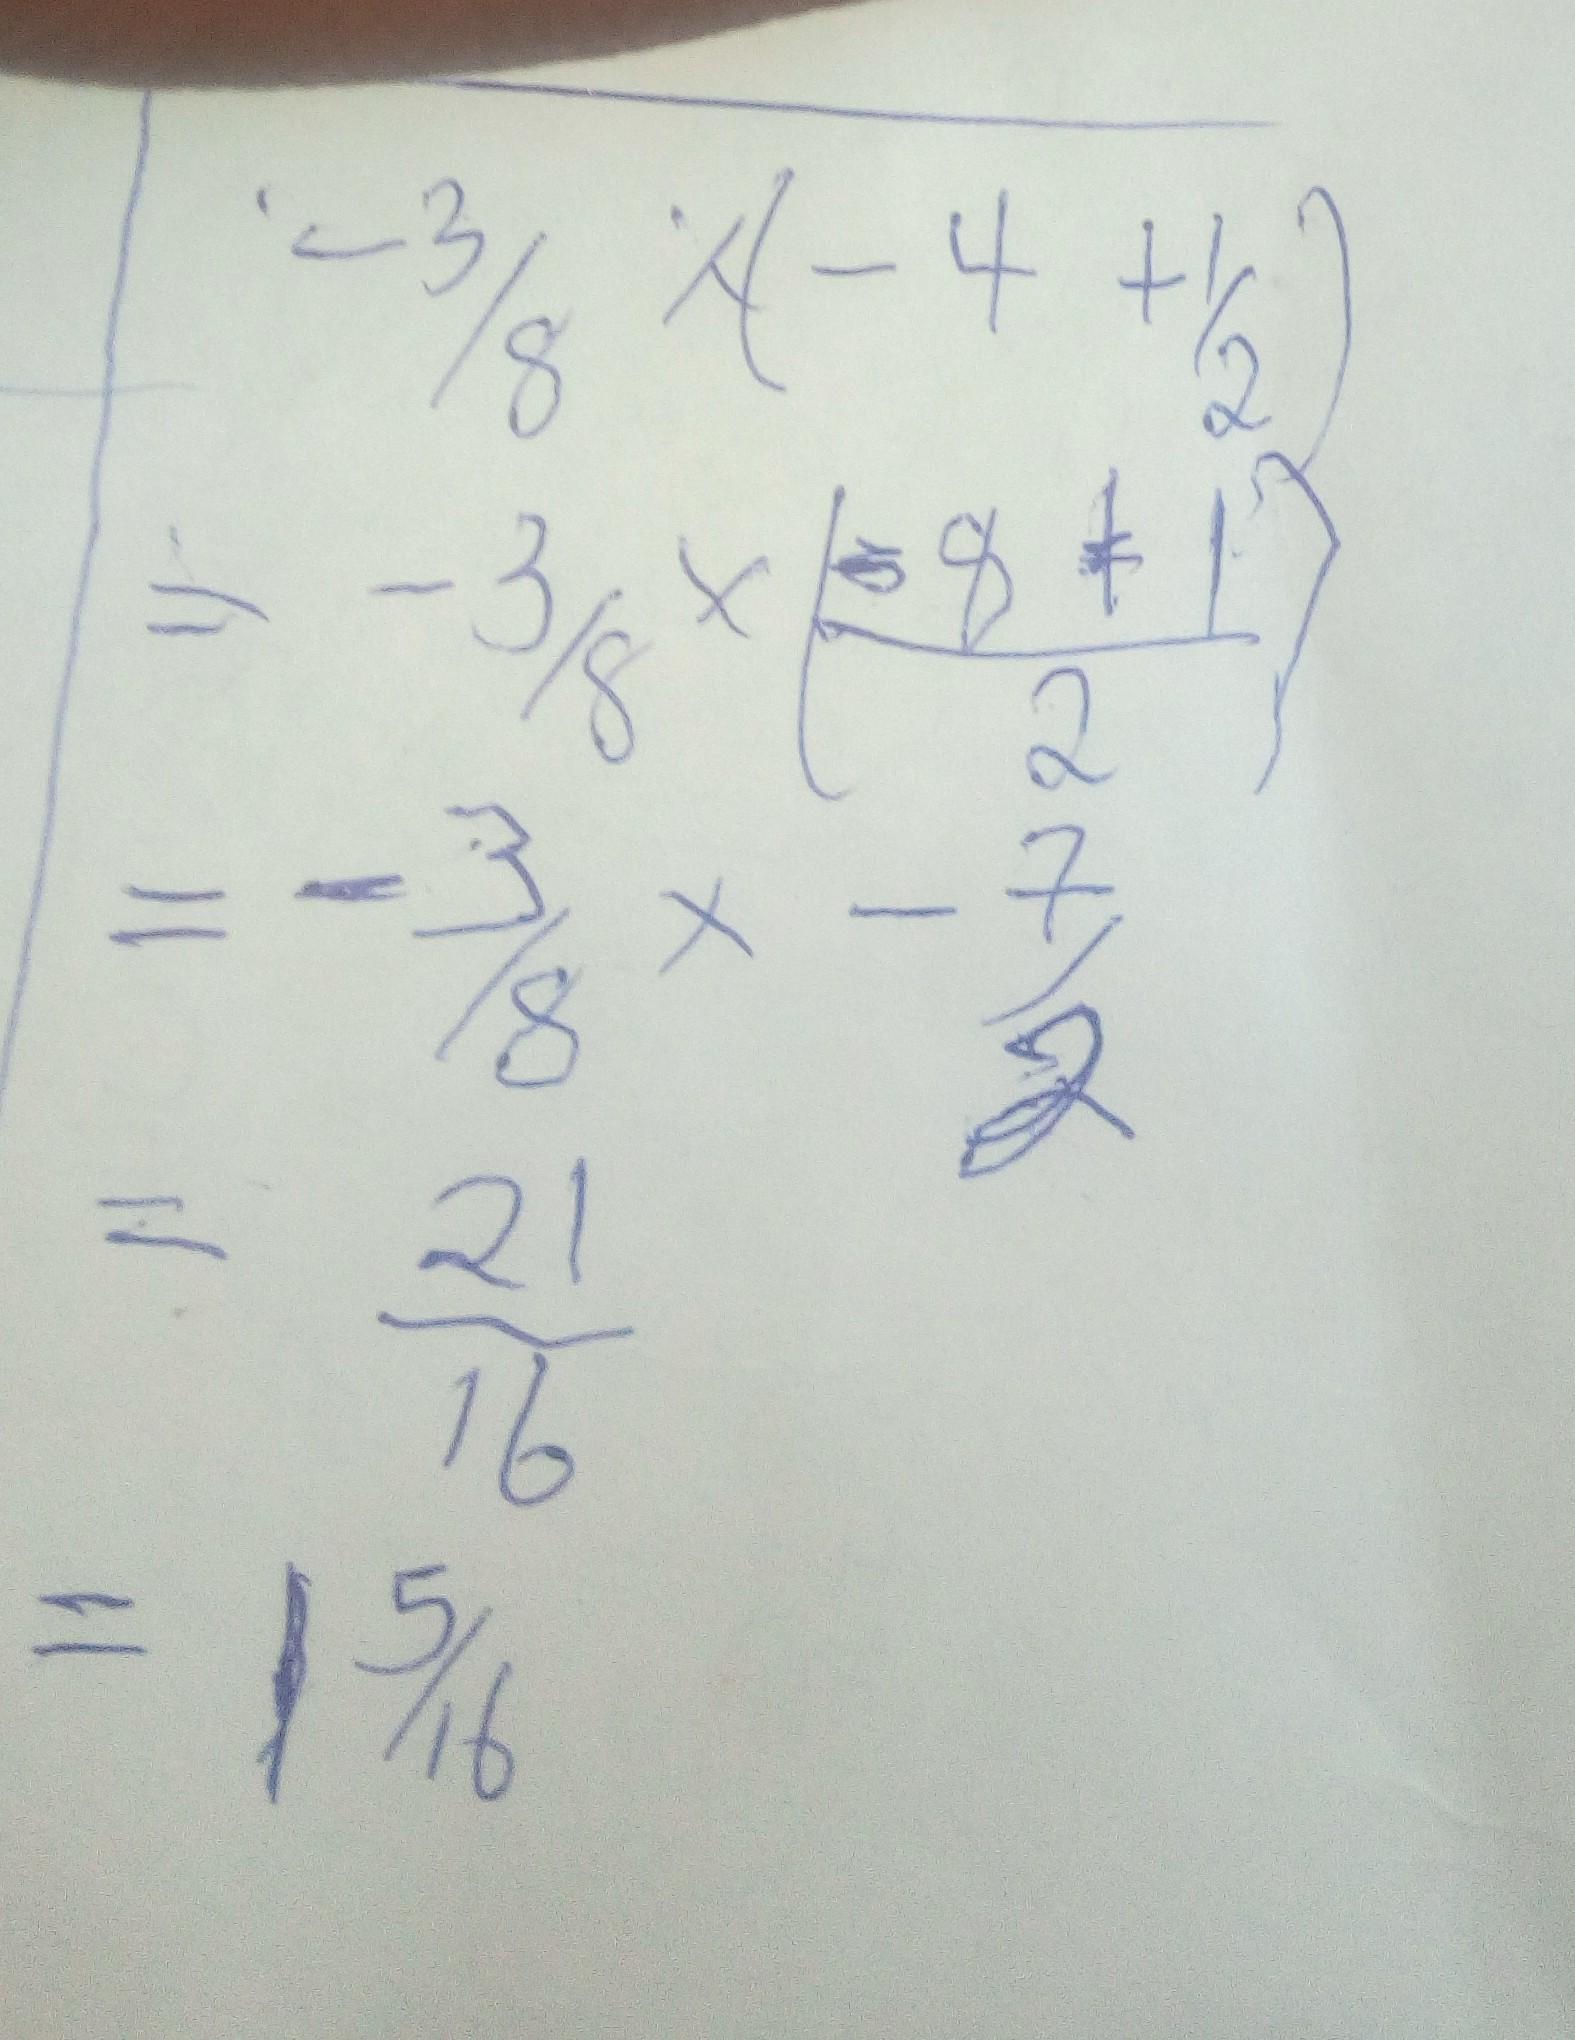 -3/8 × (-4 + 1/2)
= -3/8 × (-8 + 1 / 2)
= -3/8 × -7/2
= 21/16
= 1 5/16